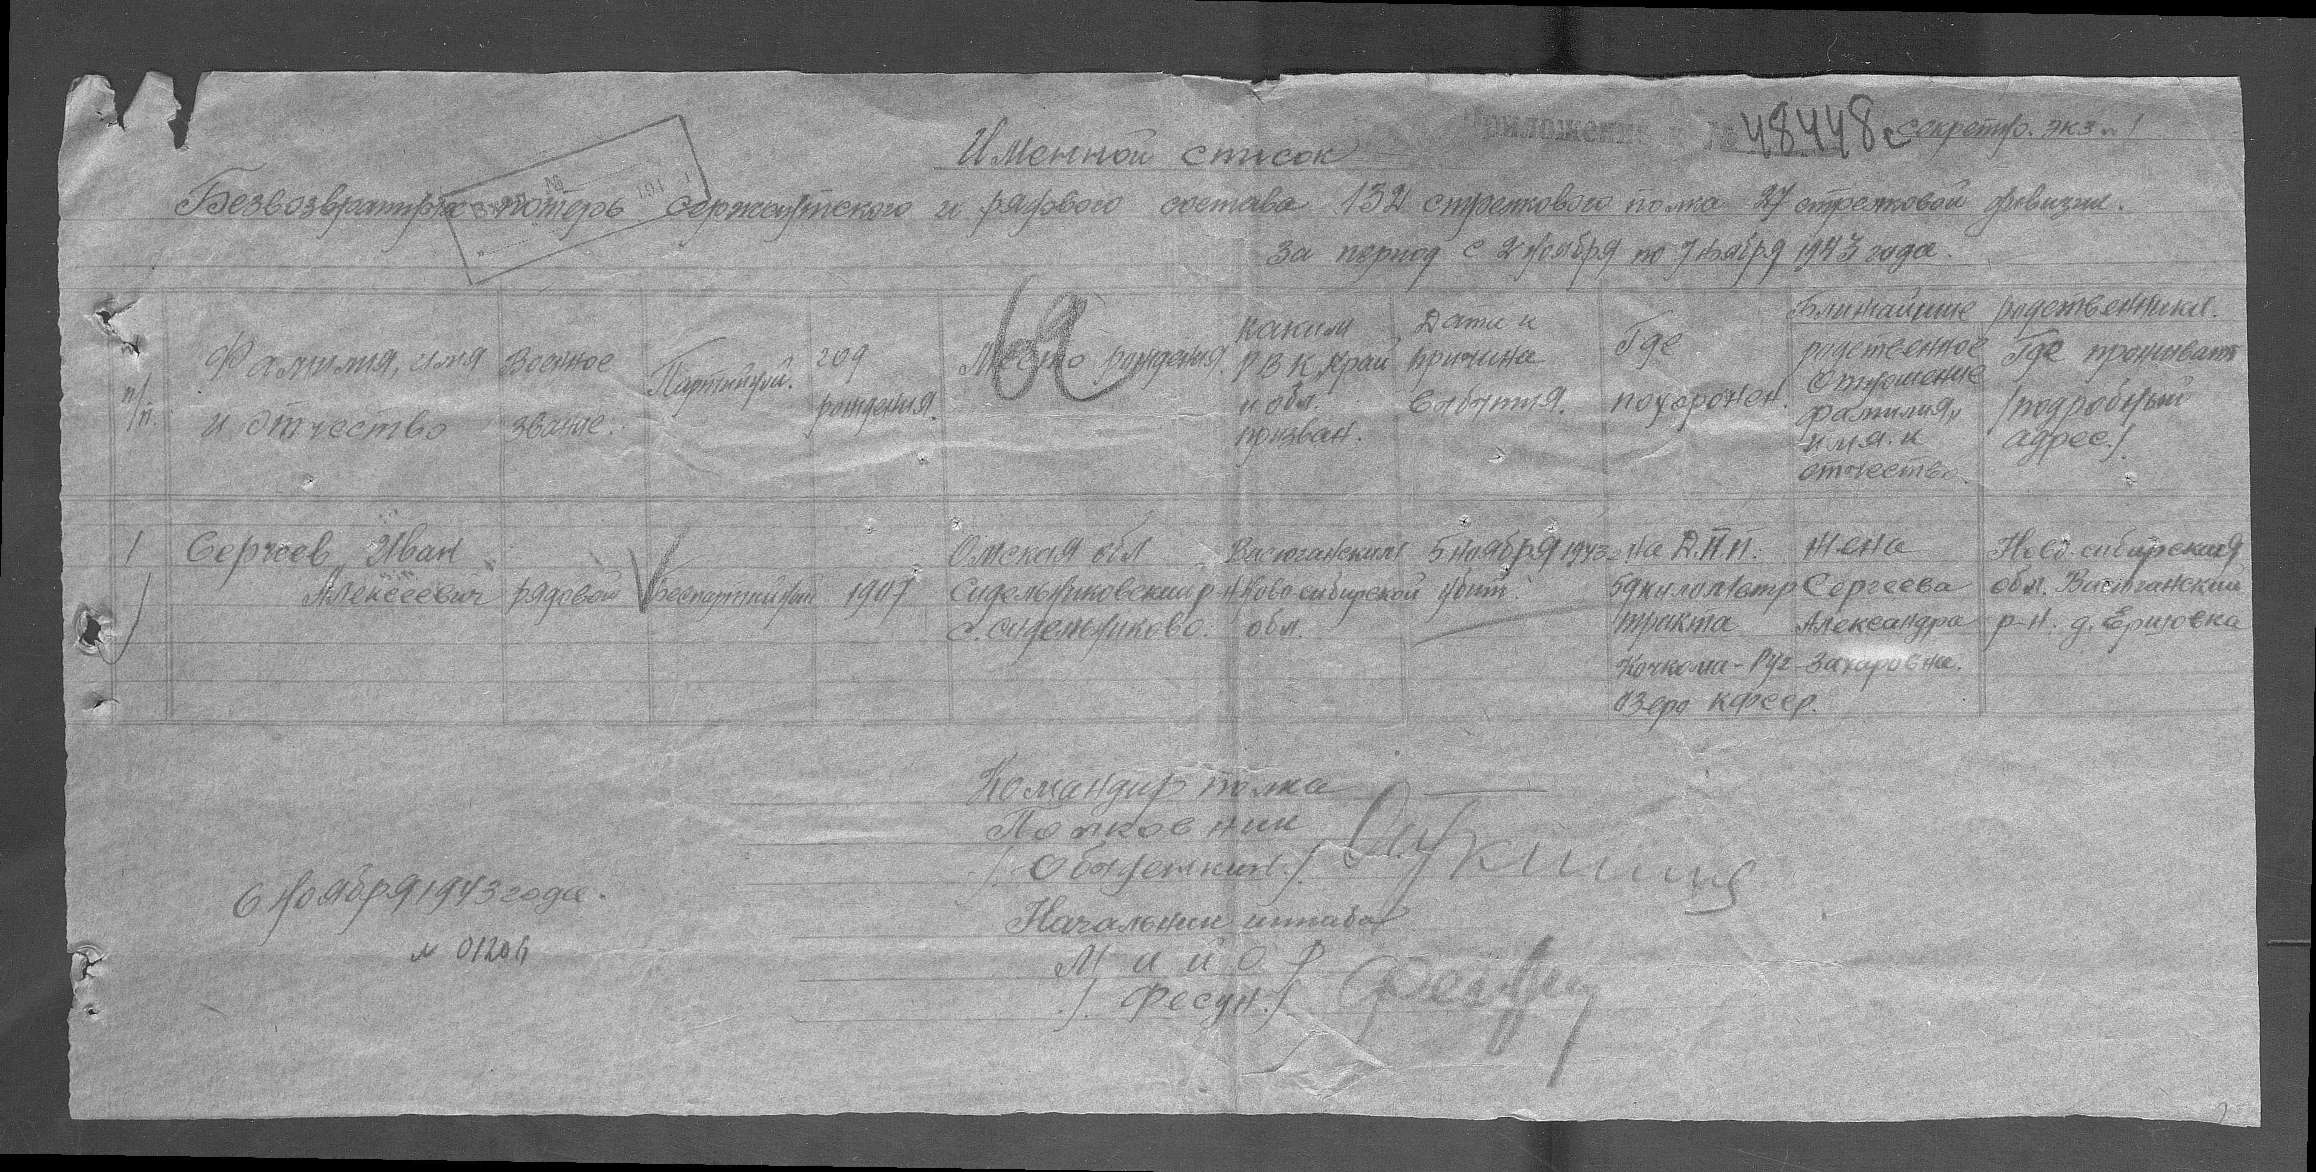 Приложение к № 48448с Секретно. экз. № 1
Именной список
Безвозвратных потерь сержантского и рядового состава 132 стрелкового полка 27 стрелковой дивизии.
за период с 2 ноября по 7 ноября 1943 года.
п/п.
Фамилия, имя и отчество
Военное звание.
Партийный.
год рождения.
Место рождения.
Каким РВК, край и обл. призван.
Дата и причина события.
Где похоронен.
Ближайшие родственники.
родственное отношение фамилия, имя и отчество
Где проживает /подробный адрес./
1
Сергеев Иван Алексеевич
рядовой
беспартийный
1907
Омская обл Сидельниковский р-н с. Сидельниково.
Васюганским Новосибирской обл.
5 ноября 1943 убит.
на Д.П.П. килолметр тракта Кочкома - Руг озеро КФССР.
жена Сергеева Александра Захаровна.
Ново-сибирская обл. Васюганский р-н. д. Ершовка
Командир полка
Полковник
Начальник штаба
Майор
/Фесун./
6 ноября 1943 года.
№ 01206